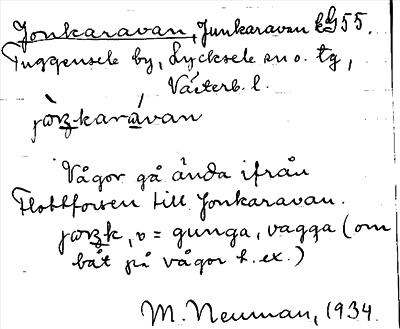 Jonkaravan, Junkaravan 55.
Tuggensele by, Lycksele sn o. tg,
Västerb. l.
Vågor gå ända ifrån
Flottforsen till Jonkaravan.
v = gunga, vagga (om
båt på vågor t. ex.)
M. Neuman, 1934.